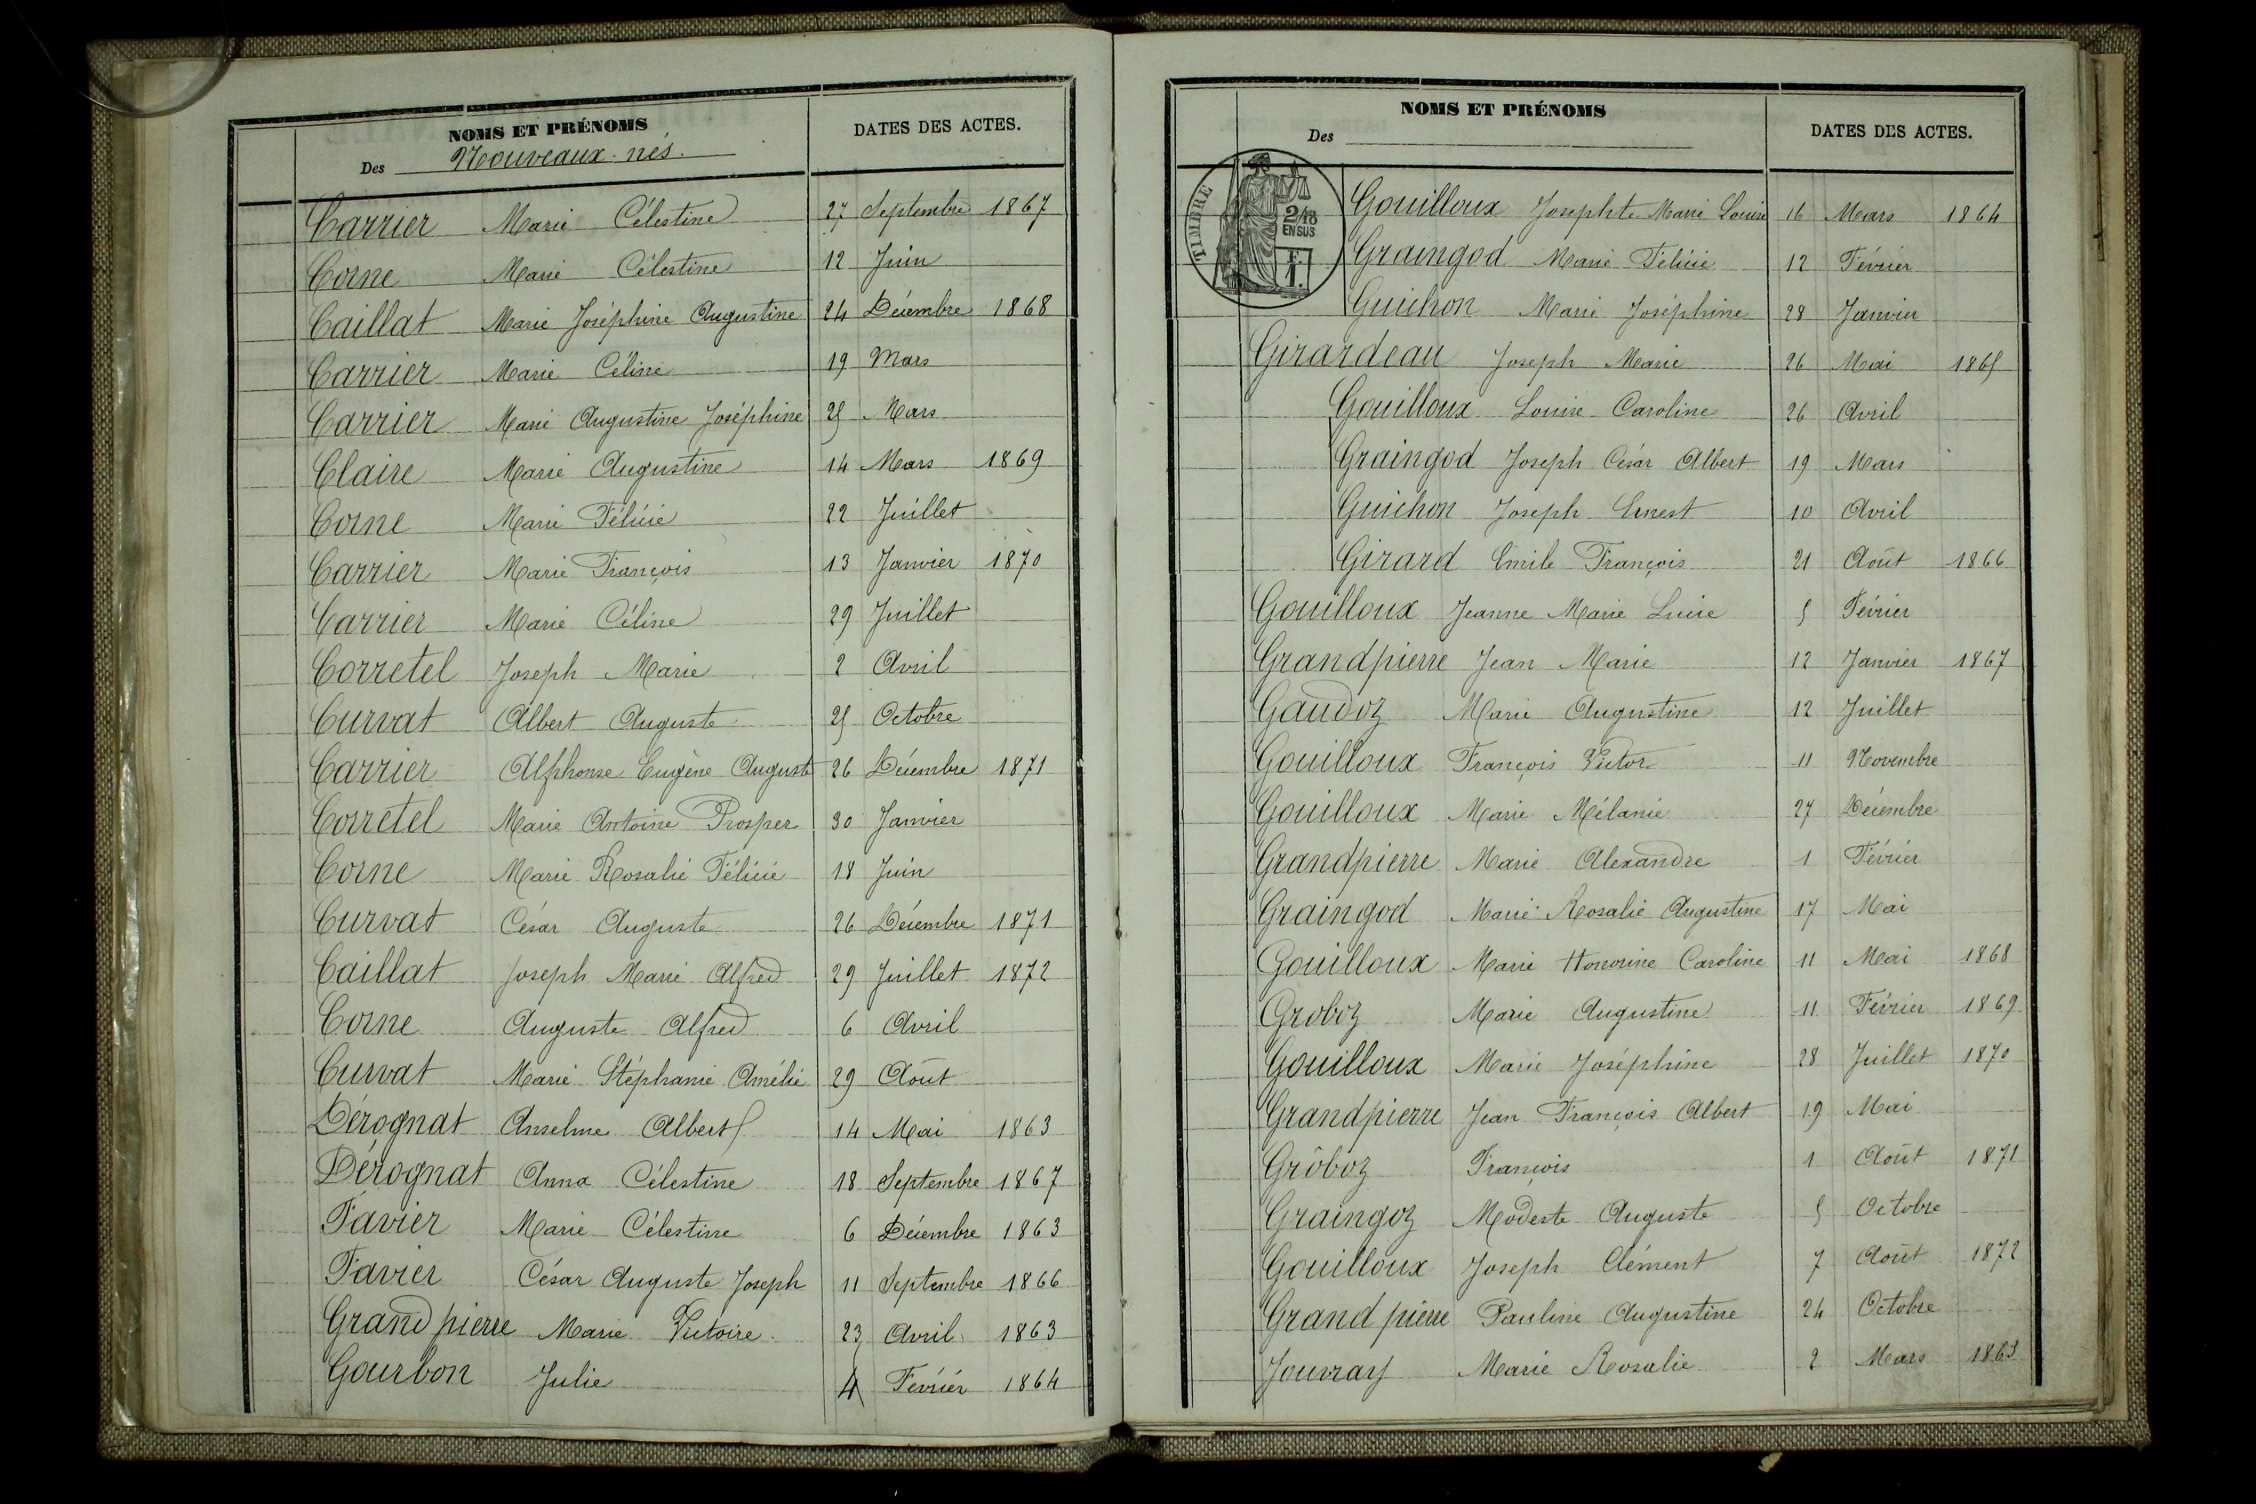 NOMS ET PRÉNOMS
DATES DES ACTES.
Des Nouveaux-nés.
Carrier Marie Célestine 27 Septembre 1867
Corne Marie Célestine 12 Juin
Caillat Marie Joséphine Augustine 24 Décembre 1868
Carrier Marie Céline 19 Mars
Carrier Marie Augustine Joséphine 25 Mars
Claire Marie Augustine 14 Mars 1869
Corne Marie Félicie 22 Juillet
Carrier Marie François 13 Janvier 1870
Carrier Marie Céline 29 Juillet
Corretel Joseph Marie 2 Avril
Curvat Albert Auguste 25 Octobre
Carrier Alphonse Eugène Auguste 26 Décembre 1871
Corretel Marie Antoine Prosper 30 Janvier
Corne Marie Rosalie Félicie 18 Juin
Curvat César Auguste 26 Décembre 1871
Caillat Joseph Marie Alfred 29 Juillet 1872
Corne Auguste Alfred 6 Avril
Curvat Marie Stéphanie Amélie 29 Août
Dérognat Anselme Albert 14 Mai 1863
Dérognat Anna Célestine 18 Septembre 1867
Favier Marie Célestine 6 Décembre 1863
Favier César Auguste Joseph 11 Septembre 1866
Grandpierre Marie Victoire 23 Avril 1863
Gourbon Julie 4 Février 1864
NOMS ET PRÉNOMS
DATES DES ACTES.
Des
TIMBRE
2/10
EN SUS
F.
1.
Gouilloux Josephte Marie Louise 16 Mars 1864
Graingod Marie Félicie 12 Février
Guichon Marie Joséphine 28 Janvier
Girardeau Joseph Marie 26 Mai 1865
Gouilloux Louise Caroline 26 Avril
Graingod Joseph César Albert 19 Mars
Guichon Joseph Ernest 10 Avril
Girard Emile François 21 Août 1866
Gouilloux Jeanne Marie Lucie 5 Février
Grandpierre Jean Marie 12 Janvier 1867
Gaudoz Marie Augustine 12 Juillet
Gouilloux François Victor 11 Novembre
Gouilloux Marie Mélanie 27 Décembre
Grandpierre Marie Alexandre 1 Février
Graingod Marie Rosalie Augustine 17 Mai
Gouilloux Marie Honorine Caroline 11 Mai 1868
Groboz Marie Augustine 11 Février 1869
Gouilloux Marie Joséphine 28 Juillet 1870
Grandpierre Jean François Albert 19 Mai
Grôboz François 1 Août 1871
Graingoz Modeste Auguste 5 Octobre
Gouilloux Joseph Clément 7 Août 1872
Grandpierre Pauline Augustine 24 Octobre
Jouvray Marie Rosalie 2 Mars 1863